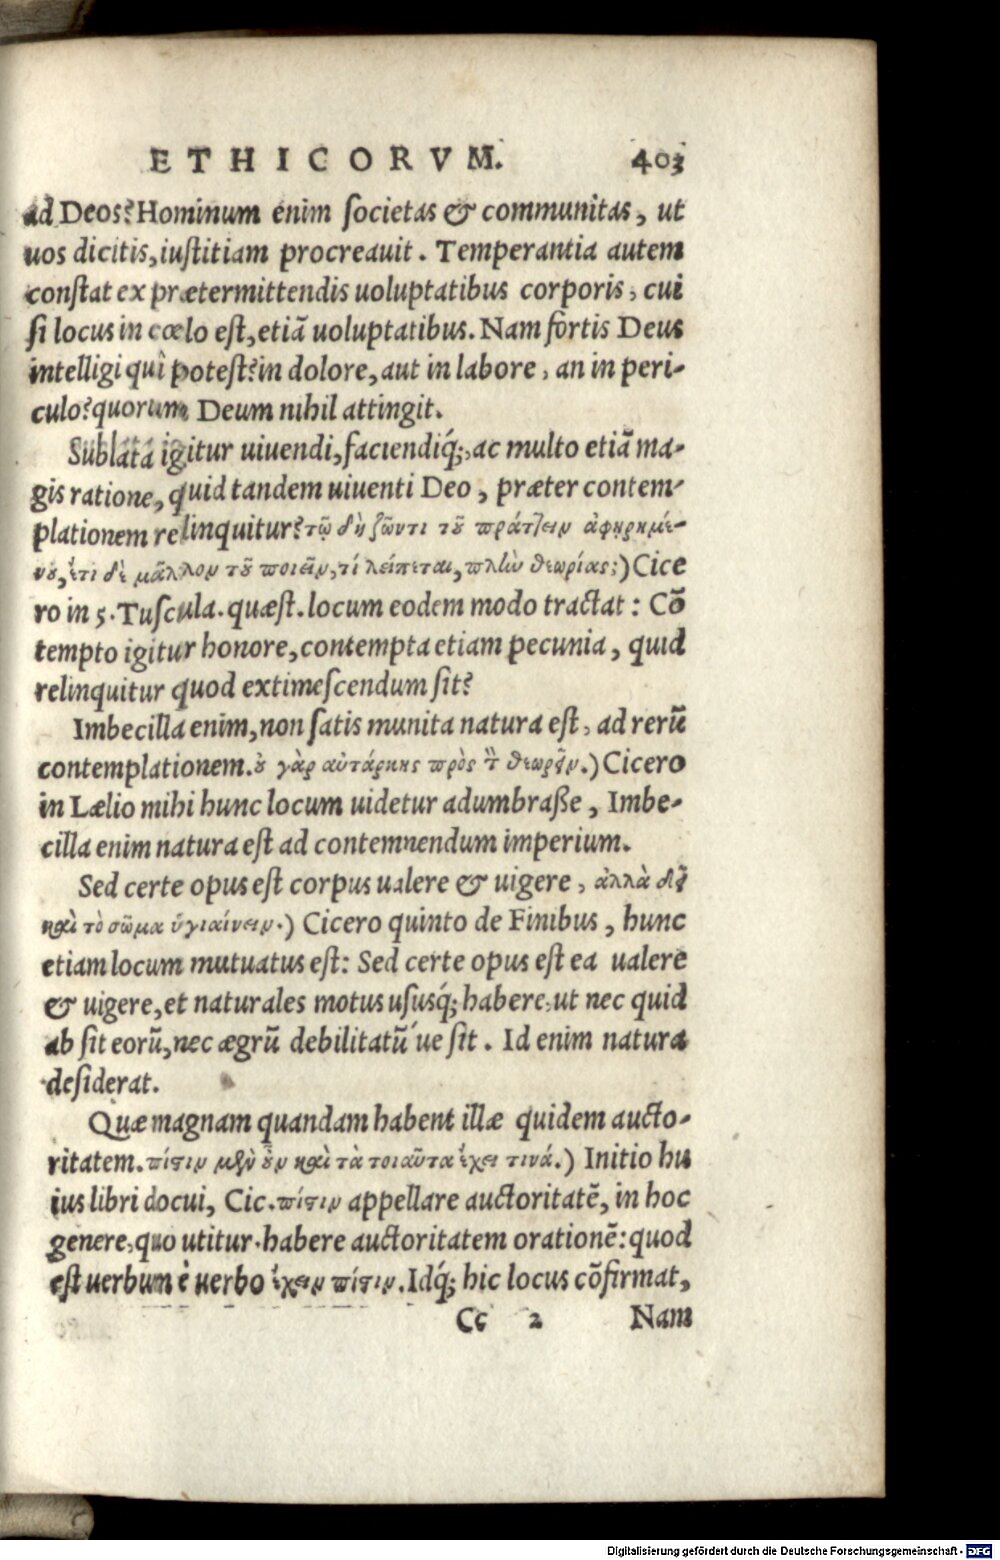 ETHICORVM. 403
ad Deos? Hominum enim ſocietas & communitas, ut
uos dicitis, iuſtitiam procreauit. Temperantia autem
conſtat ex prætermittendis uoluptatibus corporis, cui
ſi locus in cœlo eſt, etiã uoluptatibus. Nam fortis Deus
intelligi quî poteſt? in dolore, aut in labore, an in peri-
culo? quorum Deum nihil attingit.
Sublata igitur uiuendi, faciendiq́;, ac multo etiã ma-
gis ratione, quid tandem uiuenti Deo, præter contem-
plationem relinquitur? τῷ δὴ ζῶντι τοῦ πράττειν ἀφῃρημέ-
νου, ἔτι δὲ μᾶλλον τοῦ ποιεῖν, τί λείπεται, πλὴν θεωρίας;) Cice
ro in 5. Tuſcula. quæſt. locum eodem modo tractat: Cõ
tempto igitur honore, contempta etiam pecunia, quid
relinquitur quod extimeſcendum ſit?
Imbecilla enim, non ſatis munita natura eſt, ad rerũ
contemplationem. οὐ γὰρ αὐτάρκης πρὸς τὸ θεωρεῖν.) Cicero
in Lælio mihi hunc locum uidetur adumbraſſe, Imbe-
cilla enim natura eſt ad contemnendum imperium.
Sed certe opus eſt corpus ualere & uigere, ἀλλὰ δεῖ
καὶ τὸ σῶμα ὑγιαίνειν.) Cicero quinto de Finibus, hunc
etiam locum mutuatus eſt: Sed certe opus eſt ea ualere
& uigere, et naturales motus uſusq́; habere, ut nec quid
ab ſit eorũ, nec ægrũ debilitatũ ́ue ſit. Id enim natura
deſiderat.
Quæ magnam quandam habent illæ quidem aucto-
ritatem. πίστιν μὲν οὖν καὶ τὰ τοιαῦτα ἔχει τινά.) Initio hu
ius libri docui, Cic. πίστιν appellare auctoritatẽ, in hoc
genere, quo utitur. habere auctoritatem orationẽ: quod
eſt uerbum è uerbo ἔχειν πίστιν. Idq́; hic locus cõfirmat,
Cc 2 Nam
Digitalisierung gefördert durch die Deutsche Forschungsgemeinschaft - DFG